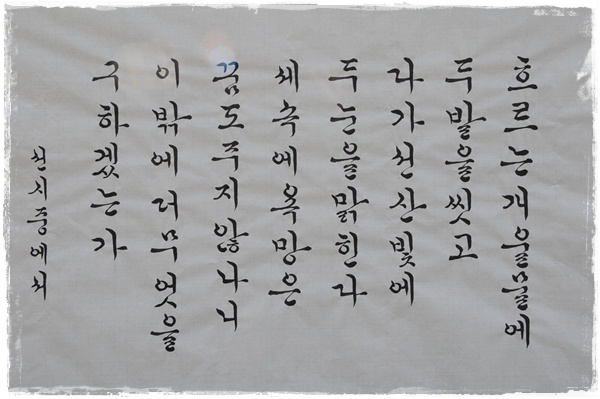 흐르는개울물에
두발을씻고
다가선산빛에
두눈을맑힌다
세속에욕망은
꿈도주지않나니
이밖에더무엇을
구하겠는가
선시중에서